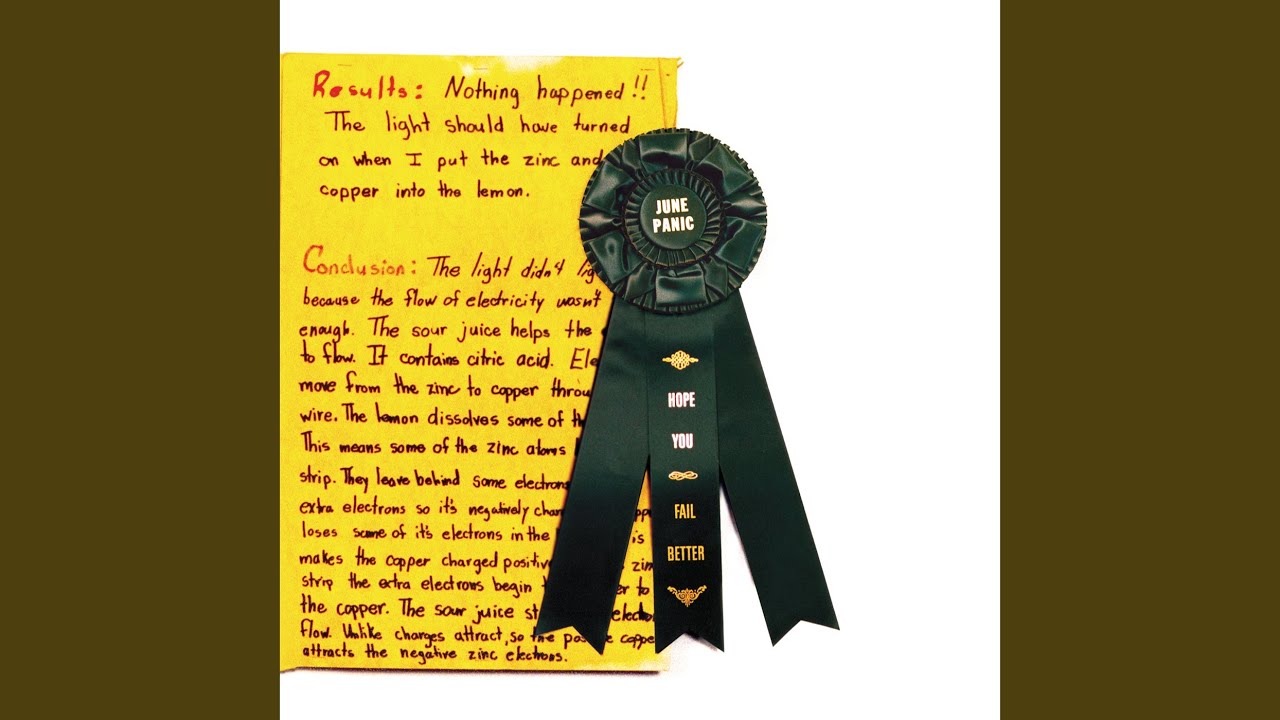 Results: Nothing happened!!
The light should have turned
on when I put the zinc and
copper into the lemon.
Conclusion: The light didn't
because the flow of electricity wasn't
enough. The sour juice helps the
to flow. It contains citric acid.
move from the zinc to copper
wire. The lemon dissolves some of
This means some of the zinc atoms
strip. They leave behind some electrons
extra electrons so it's negatively
loses some of it's electrons in the is
makes the copper charged
strip the extra electrons begin to
the copper. The sour juice
flow. Unlike charges attract, so the
attracts the negative zinc electrons.
JUNE
PANIC
HOPE
YOU
FAIL
BETTER